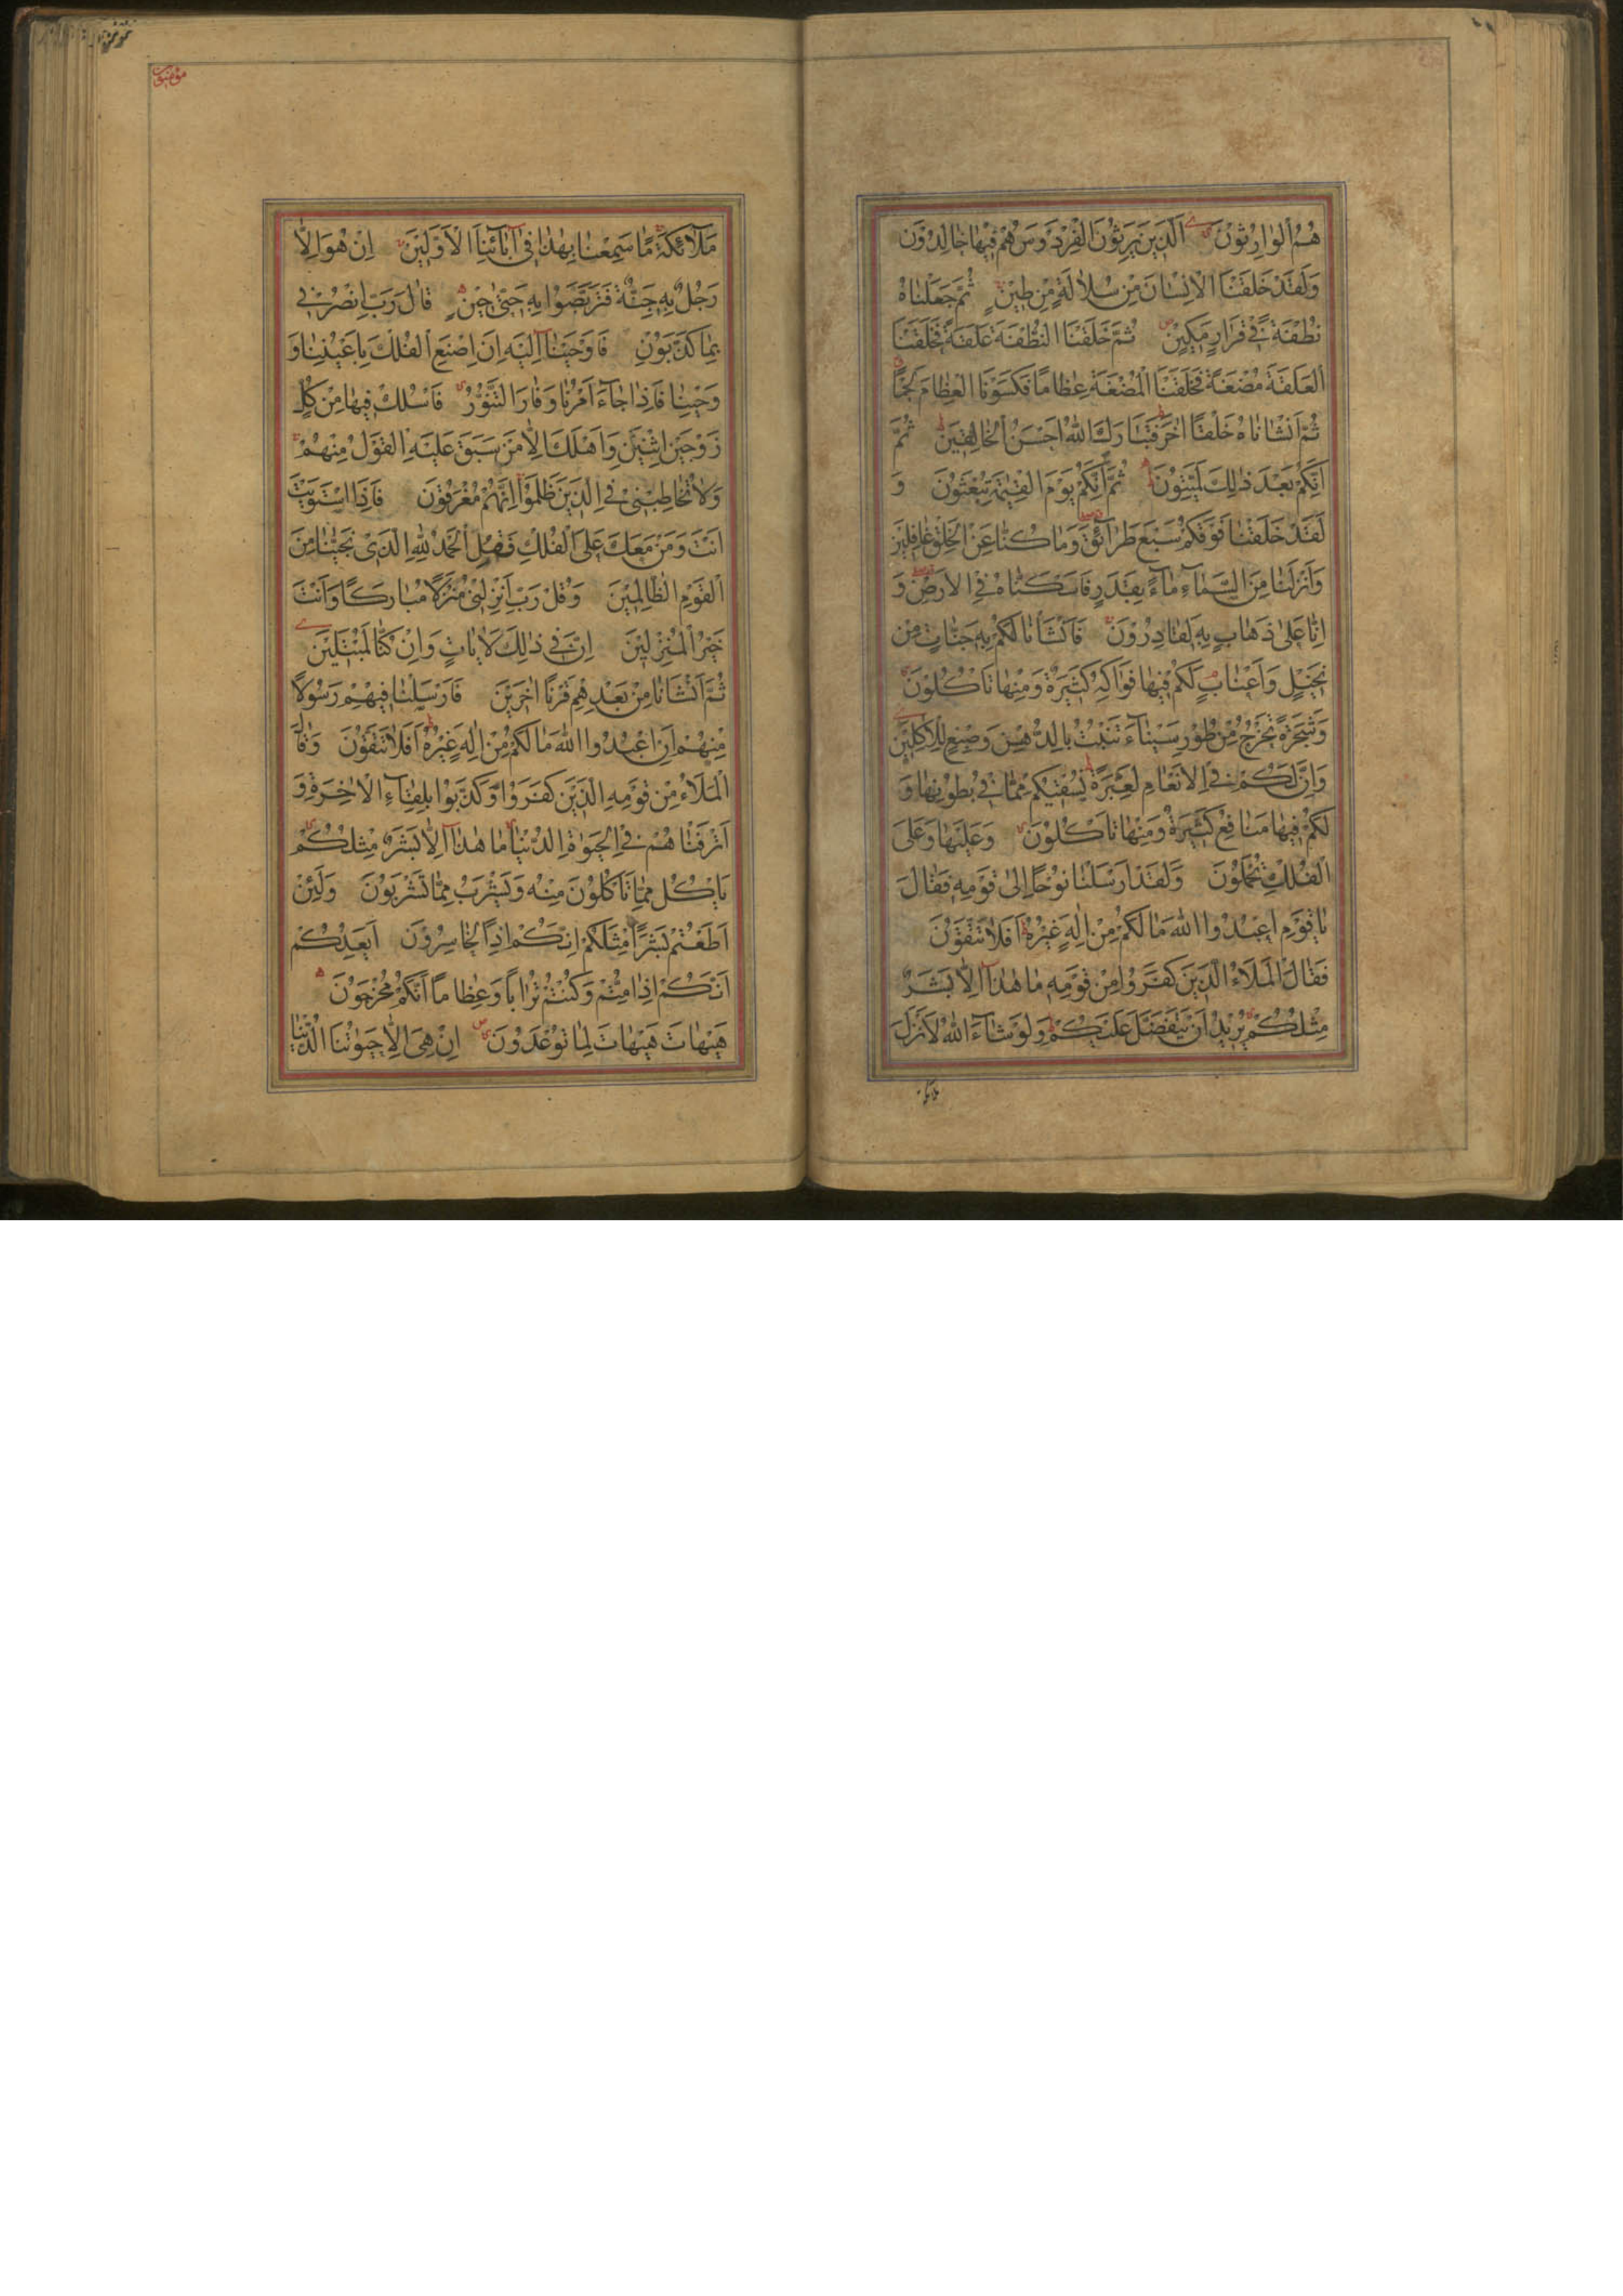 هُمُ الْوَارِثُونَ الَّذِينَ يَرِثُونَ الْفِرْدَوْسَ هُمْ فِيهَا خَالِدُونَ
وَلَقَدْ خَلَقْنَا الْاِنْسَانَ مِنْ سُلَالَةٍ مِنْ طِينٍ ثُمَّ جَعَلْنَاهُ
نُطْفَةً فِي قَرَارٍ مَكِينٍ ثُمَّ خَلَقْنَا النُّطْفَةَ عَلَقَةً فَخَلَقْنَا
الْعَلَقَةَ مُضْغَةً فَخَلَقْنَا الْمُضْغَةَ عِظَامًا فَكَسَوْنَا الْعِظَامَ لَحْمًا
ثُمَّ اَنْشَاْنَاهُ خَلْقًا اٰخَرَ فَتَبَارَكَ اللّٰهُ اَحْسَنُ الْخَالِقِينَ ثُمَّ
اِنَّكُمْ بَعْدَ ذٰلِكَ لَمَيِّتُونَ ثُمَّ اِنَّكُمْ يَوْمَ الْقِيٰمَةِ تُبْعَثُونَ وَ
لَقَدْ خَلَقْنَا فَوْقَكُمْ سَبْعَ طَرَائِقَ وَمَا كُنَّا عَنِ الْخَلْقِ غَافِلِينَ
وَاَنْزَلْنَا مِنَ السَّمَاءِ مَاءً بِقَدَرٍ فَاَسْكَنَّاهُ فِي الْاَرْضِ وَ
اِنَّا عَلٰى ذَهَابٍ بِهِ لَقَادِرُونَ فَاَنْشَاْنَا لَكُمْ بِهِ جَنَّاتٍ مِنْ
نَخِيلٍ وَاَعْنَابٍ لَكُمْ فِيهَا فَوَاكِهُ كَثِيرَةٌ وَمِنْهَا تَاْكُلُونَ
وَشَجَرَةً تَخْرُجُ مِنْ طُورِ سَيْنَاءَ تَنْبُتُ بِالدُّهْنِ وَصِبْغٍ لِلْاٰكِلِينَ
وَاِنَّ لَكُمْ فِي الْاَنْعَامِ لَعِبْرَةً نُسْقِيكُمْ مِمَّا فِي بُطُونِهَا وَ
لَكُمْ فِيهَا مَنَافِعُ كَثِيرَةٌ وَمِنْهَا تَاْكُلُونَ وَعَلَيْهَا وَعَلَى
الْفُلْكِ تُحْمَلُونَ وَلَقَدْ اَرْسَلْنَا نُوحًا اِلٰى قَوْمِهِ فَقَالَ
يَا قَوْمِ اعْبُدُوا اللّٰهَ مَا لَكُمْ مِنْ اِلٰهٍ غَيْرُهُ اَفَلَا تَتَّقُونَ
فَقَالَ الْمَلَاءُ الَّذِينَ كَفَرُوا مِنْ قَوْمِهِ مَا هٰذَا اِلَّا بَشَرٌ
مِثْلُكُمْ يُرِيدُ اَنْ يَتَفَضَّلَ عَلَيْكُمْ وَلَوْ شَاءَ اللّٰهُ لَاَنْزَلَ
ملائكة
مؤمنون
مَلَائِكَةً مَا سَمِعْنَا بِهٰذَا فِي اٰبَائِنَا الْاَوَّلِينَ اِنْ هُوَ اِلَّا
رَجُلٌ بِهِ جِنَّةٌ فَتَرَبَّصُوا بِهِ حَتّٰى حِينٍ قَالَ رَبِّ انْصُرْنِي
بِمَا كَذَّبُونِ فَاَوْحَيْنَا اِلَيْهِ اَنِ اصْنَعِ الْفُلْكَ بِاَعْيُنِنَا وَ
وَحْيِنَا فَاِذَا جَاءَ اَمْرُنَا وَفَارَ التَّنُّورُ فَاسْلُكْ فِيهَا مِنْ كُلٍّ
زَوْجَيْنِ اثْنَيْنِ وَاَهْلَكَ اِلَّا مَنْ سَبَقَ عَلَيْهِ الْقَوْلُ مِنْهُمْ
وَلَا تُخَاطِبْنِي فِي الَّذِينَ ظَلَمُوا اِنَّهُمْ مُغْرَقُونَ فَاِذَا اسْتَوَيْتَ
اَنْتَ وَمَنْ مَعَكَ عَلَى الْفُلْكِ فَقُلِ الْحَمْدُ لِلّٰهِ الَّذِي نَجّٰينَا مِنَ
الْقَوْمِ الظَّالِمِينَ وَقُلْ رَبِّ اَنْزِلْنِي مُنْزَلًا مُبَارَكًا وَاَنْتَ
خَيْرُ الْمُنْزِلِينَ اِنَّ فِي ذٰلِكَ لَاٰيَاتٍ وَاِنْ كُنَّا لَمُبْتَلِينَ
ثُمَّ اَنْشَاْنَا مِنْ بَعْدِهِمْ قَرْنًا اٰخَرِينَ فَاَرْسَلْنَا فِيهِمْ رَسُولًا
مِنْهُمْ اَنِ اعْبُدُوا اللّٰهَ مَا لَكُمْ مِنْ اِلٰهٍ غَيْرُهُ اَفَلَا تَتَّقُونَ وَقَالَ
الْمَلَاءُ مِنْ قَوْمِهِ الَّذِينَ كَفَرُوا وَكَذَّبُوا بِلِقَاءِ الْاٰخِرَةِ وَ
اَتْرَفْنَاهُمْ فِي الْحَيٰوةِ الدُّنْيَا مَا هٰذَا اِلَّا بَشَرٌ مِثْلُكُمْ
يَاْكُلُ مِمَّا تَاْكُلُونَ مِنْهُ وَيَشْرَبُ مِمَّا تَشْرَبُونَ وَلَئِنْ
اَطَعْتُمْ بَشَرًا مِثْلَكُمْ اِنَّكُمْ اِذًا لَخَاسِرُونَ اَيَعِدُكُمْ
اَنَّكُمْ اِذَا مِتُّمْ وَكُنْتُمْ تُرَابًا وَعِظَامًا اَنَّكُمْ مُخْرَجُونَ
هَيْهَاتَ هَيْهَاتَ لِمَا تُوعَدُونَ اِنْ هِيَ اِلَّا حَيٰوتُنَا الدُّنْيَا